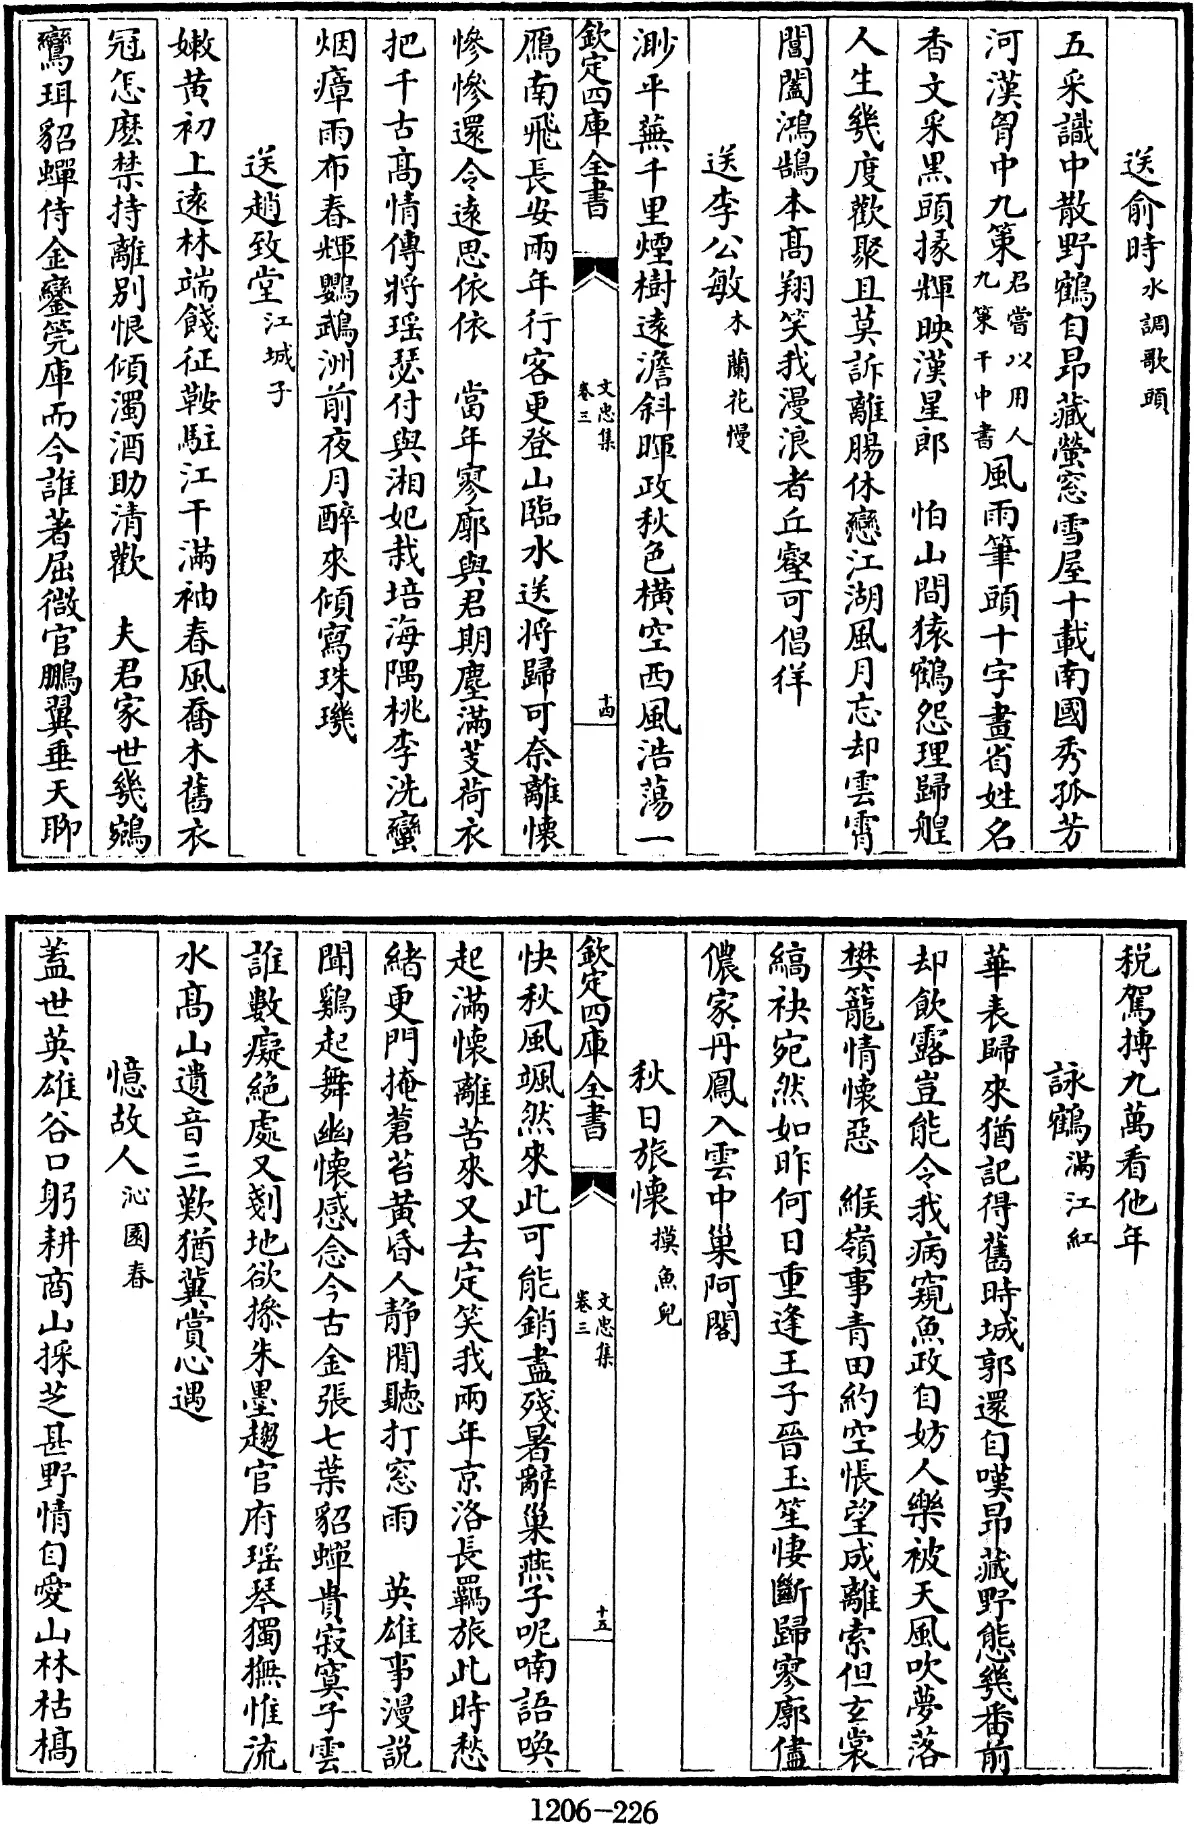 送俞時水調歌頭
五采識中散野鶴自昂藏螢窓雪屋十載南國秀孤芳
河漢胷中九策君嘗以用人九策干中書風雨筆頭十字畫省姓名
香文采黒頭掾輝映漢星郎　怕山間猿鶴怨理歸艎
人生㡬度歡聚且莫訴離腸休戀江湖風月忘却雲霄
閶闔鴻鵠本髙翔笑我漫浪者丘壑可倡佯
送李公敏木蘭花慢
渺平蕪千里煙樹逺澹斜暉政秋色橫空西風浩蕩一
欽定四庫全書
文忠集
卷三
十四
鴈南飛長安兩年行客更登山臨水送將歸可奈離懐
慘慘還令逺思依依　當年寥廓與君期塵滿芰荷衣
把千古髙情傳將瑶瑟付與湘妃栽培海隅桃李洗蠻
烟瘴雨布春輝鸚鵡洲前夜月醉來傾寫珠璣
送趙致堂江城子
嫩黄初上逺林端餞征鞍駐江干滿袖春風喬木舊衣
冠怎麽禁持離別恨傾濁酒助清歡　夫君家世㡬鵷
鸞珥貂蟬侍金鑾筦庫而今誰著屈微官鵬翼垂天聊
税駕摶九萬看他年
詠鶴滿江紅
華表歸來猶記得舊時城郭還自嘆昻藏野態㡬番前
却飲露豈能令我病窺魚政自妨人樂被天風吹夢落
樊籠情懐惡　緱嶺事青田約空悵望成離索但玄裳
縞袂宛然如昨何日重逢王子晉玉笙悽斷歸寥廓儘
儂家丹鳳入雲中巢阿閣
秋日旅懐摸魚兒
欽定四庫全書
文忠集
卷三
十五
快秋風颯然來此可能銷盡殘暑辭巢燕子呢喃語喚
起滿懐離苦來又去定笑我兩年京洛長羈旅此時愁
緒更門掩蒼苔黄昏人靜閒聽打窓雨　英雄事漫説
聞鷄起舞幽懐感念今古金張七葉貂蟬貴寂寞子雲
誰數癡絶處又剗地欲搽朱墨趨官府瑶琴獨撫惟流
水髙山遺音三歎猶冀賞心遇
憶故人沁園春
蓋世英雄谷口躬耕商山採芝甚野情自愛山林枯槁
1206-226